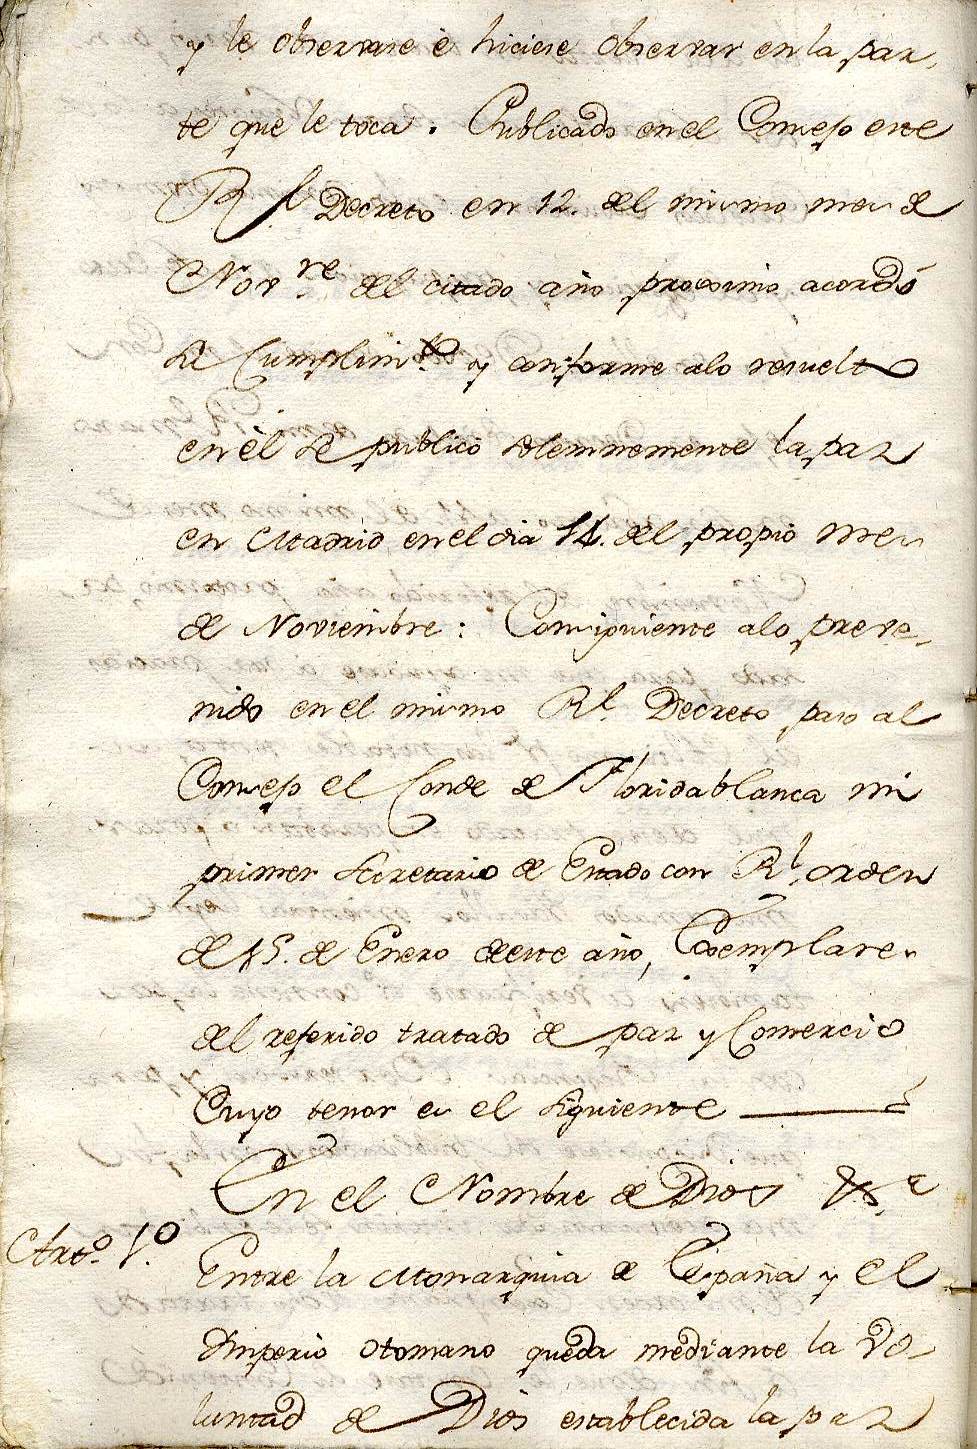 y le observase è hiciese observar en la par-
te que le toca. Publicado en el Consejo este
Rl Decreto en 12. del mismo mes de
Novre del citado año proximo acordó
se Cumplimto y conforme alo resuelto
en èl se publicò solemnemente la paz
en Madrid en el dia 14. del propio mes
de Noviembre: Consiguiente alo preve-
nido en el mismo Rl Decreto paso al
Consejo el Conde de Floridablanca mi
primer secretario de Estado con Rl orden
de 15. de Enero deste año, Exemplares
del referido tratado de paz y Comercio
Cuyo tenor es el siguiente
En el Nombre de Dios &a
Arto. 1o. Entre la Monarquia de España y el
Imperio Otomano queda mediante la vo-
luntad de Dios establecida la paz